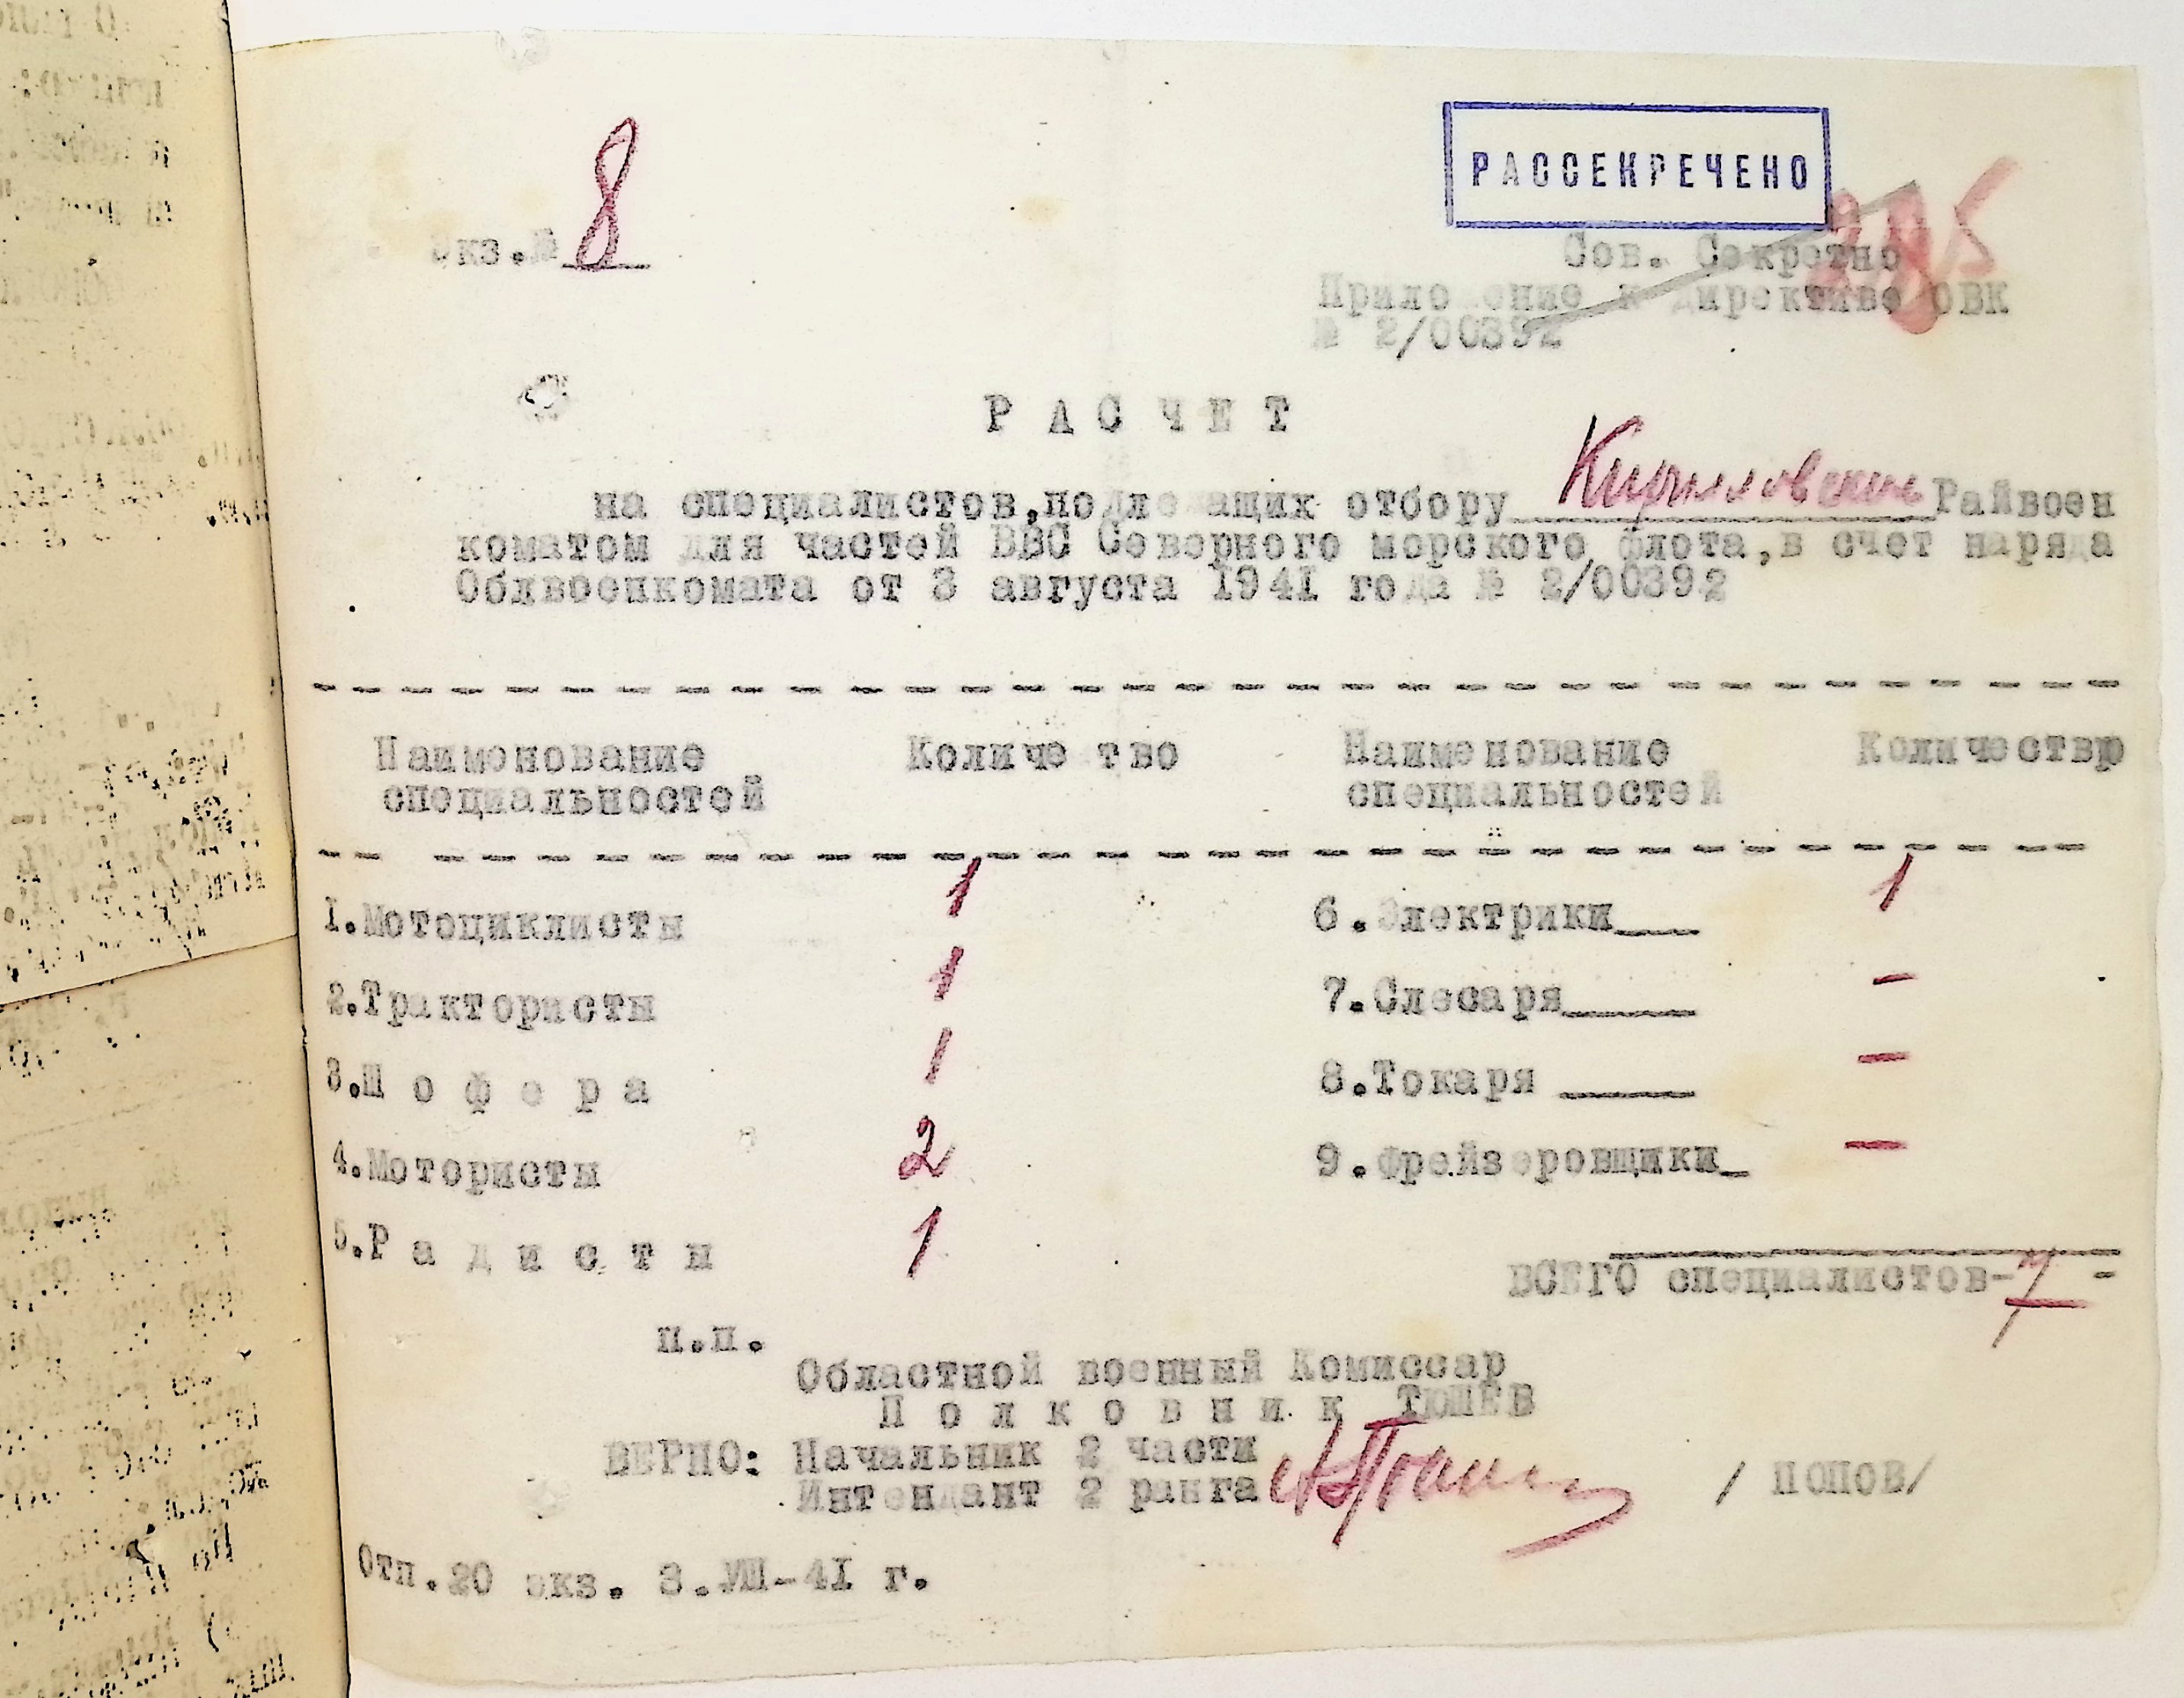 РАССЕКРЕЧЕНО
Экз.№ 8
Сов. Секретно
Приложение к директиве ОВК
№ 2/00392
РАСЧЕТ
на специалистов,подлежащих отбору Кирилловским Райвоен
коматом для частей ВВС Северного морского флота,в счет наряда
Облвоенкомата от 3 августа 1941 года № 2/00392
Наименование Количество Наименование Количество
специальностей специальностей
1.Мотоциклисты 1 6.Электрики 1
2.Трактористы 1 7.Слесаря -
3.Шофера 1 8.Токаря -
4.Мотористы 2 9.Фрейзеровщики -
5.Радисты 1
ВСЕГО специалистов- 7 -
п.п.
Областной военный Комиссар
Полковник ТЮШЕВ
ВЕРНО: Начальник 2 части
Интендант 2 ранга /ПОПОВ/
Отп.20 экз. 3.VIII-41 г.